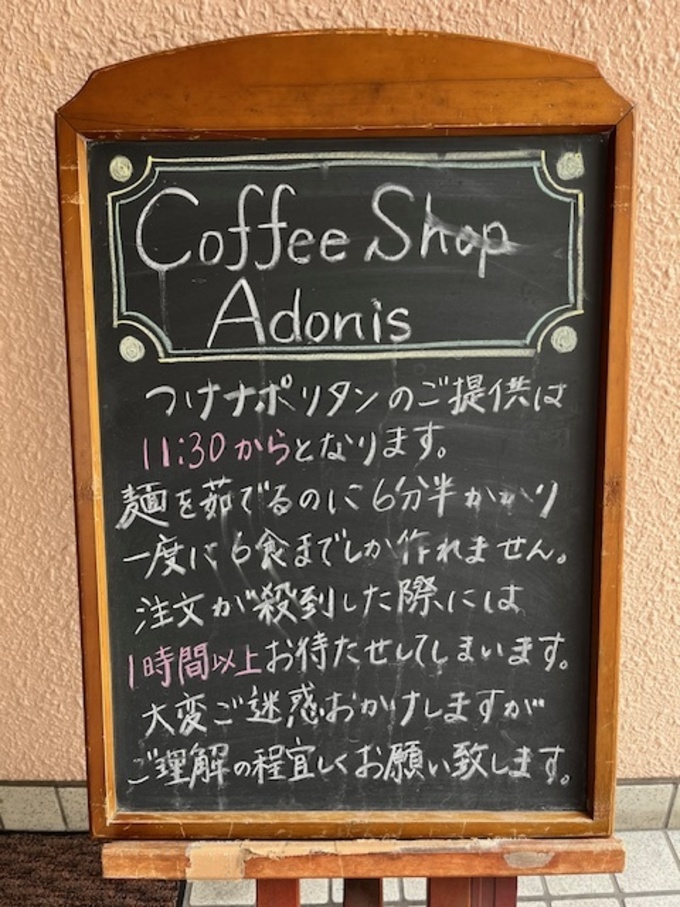 Coffee Shop
Adonis
つけナポリタンのご提供は
11:30からとなります。
麺を茹でるのに6分半かかり
一度に6食までしか作れません。
注文が殺到した際には
1時間以上お待たせしてしまいます。
大変ご迷惑おかけしますが
ご理解の程宜しくお願い致します。